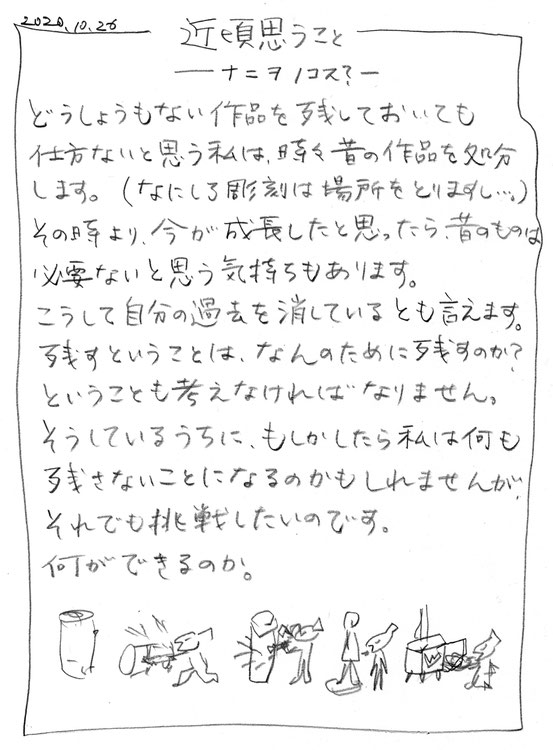 2020.10.26
近頃思うこと
ーナニヲノコス?ー
どうしょうもない作品を残しておいても
仕方ないと思う私は、時々昔の作品を処分
します。(なにしろ彫刻は場所をとりますし…。)
その時より、今が成長したと思ったら、昔のものは
必要ないと思う気持ちもあります。
こうして自分の過去を消しているとも言えます。
残すということは、なんのために残すのか?
ということも考えなければなりません。
そうしているうちに、もしかしたら私は何も
残さないことになるのかもしれませんが、
それでも挑戦したいのです。
何ができるのか。